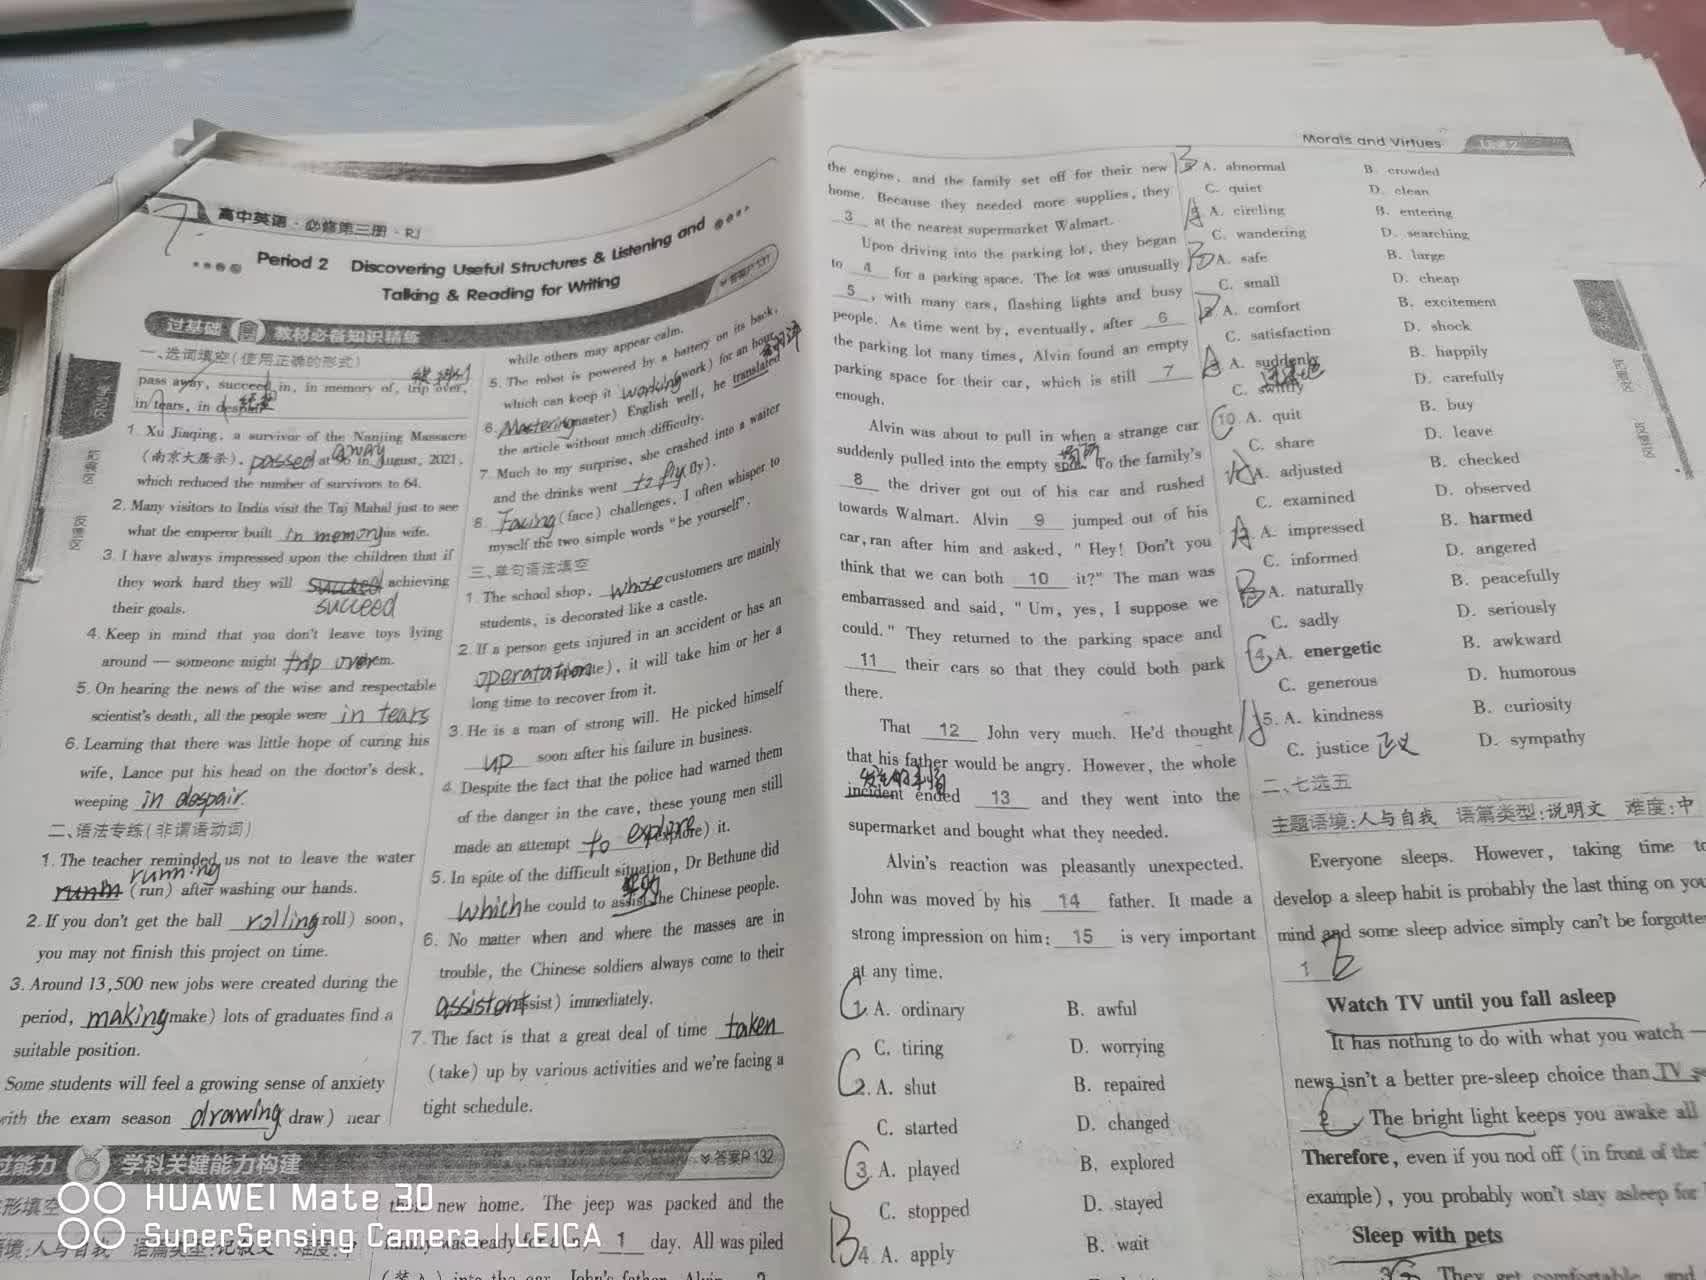 高中英语·必修第三册·RJ
Period 2 Discovering Useful Structures & Listening and
Talking & Reading for Writing
答案P131
过基础 教材必备知识精练
一、选词填空(使用正确的形式)
pass away, succeed in, in memory of, trip over,
in tears, in despair
1. Xu Jiaqing, a survivor of the Nanjing Massacre
(南京大屠杀), passed away at 96 in August, 2021,
which reduced the number of survivors to 64.
2. Many visitors to India visit the Taj Mahal just to see
what the emperor built in memory his wife.
3. I have always impressed upon the children that if
they work hard they will succeed achieving
succeed
their goals.
4. Keep in mind that you don't leave toys lying
around — someone might trip over them.
5. On hearing the news of the wise and respectable
scientist's death, all the people were in tears
6. Learning that there was little hope of curing his
wife, Lance put his head on the doctor's desk,
weeping in despair.
二、语法专练(非谓语动词)
1. The teacher reminded us not to leave the water
running
(run) after washing our hands.
2. If you don't get the ball rolling roll) soon,
you may not finish this project on time.
3. Around 13,500 new jobs were created during the
period, making make) lots of graduates find a
suitable position.
Some students will feel a growing sense of anxiety
with the exam season drawing draw) near
while others may appear calm.
5. The robot is powered by a battery on its back,
which can keep it working (work) for an hour.
6. Mastering master) English well, he translated
the article without much difficulty.
7. Much to my surprise, she crashed into a waiter
and the drinks went to fly fly).
8. Facing (face) challenges, I often whisper to
myself the two simple words "be yourself".
三、单句语法填空
1. The school shop, whose customers are mainly
students, is decorated like a castle.
2. If a person gets injured in an accident or has an
operatation te), it will take him or her a
long time to recover from it.
3. He is a man of strong will. He picked himself
up soon after his failure in business.
4. Despite the fact that the police had warned them
of the danger in the cave, these young men still
made an attempt to explore (explore) it.
5. In spite of the difficult situation, Dr Bethune did
which he could to assist the Chinese people.
6. No matter when and where the masses are in
trouble, the Chinese soldiers always come to their
assistant ssist) immediately.
7. The fact is that a great deal of time taken
(take) up by various activities and we're facing a
tight schedule.
过能力 学科关键能力构建
答案P132
形填空
语境:人与自我 语篇类型:记叙文 难度:中
their new home. The jeep was packed and the
family was ready for a(n) 1 day. All was piled
(装入) into the car. John's father, Alvin, 2
Morals and Virtues
the engine, and the family set off for their new
home. Because they needed more supplies, they
3 at the nearest supermarket Walmart.
Upon driving into the parking lot, they began
to 4 for a parking space. The lot was unusually
5 , with many cars, flashing lights and busy
people. As time went by, eventually, after 6
the parking lot many times, Alvin found an empty
parking space for their car, which is still 7
enough.
Alvin was about to pull in when a strange car
suddenly pulled into the empty spot. To the family's
8 the driver got out of his car and rushed
towards Walmart. Alvin 9 jumped out of his
car, ran after him and asked, "Hey! Don't you
think that we can both 10 it?" The man was
embarrassed and said, "Um, yes, I suppose we
could." They returned to the parking space and
11 their cars so that they could both park
there.
That 12 John very much. He'd thought
that his father would be angry. However, the whole
incident ended 13 and they went into the
supermarket and bought what they needed.
Alvin's reaction was pleasantly unexpected.
John was moved by his 14 father. It made a
strong impression on him: 15 is very important
at any time.
C 1. A. ordinary B. awful
C. tiring D. worrying
C 2. A. shut B. repaired
C. started D. changed
C 3. A. played B. explored
C. stopped D. stayed
B 4. A. apply B. wait
A. abnormal B. crowded
C. quiet D. clean
A. circling B. entering
C. wandering D. searching
A. safe B. large
C. small D. cheap
A. comfort B. excitement
C. satisfaction D. shock
A. suddenly B. happily
C. swiftly D. carefully
10. A. quit B. buy
C. share D. leave
A. adjusted B. checked
C. examined D. observed
A. impressed B. harmed
C. informed D. angered
A. naturally B. peacefully
C. sadly D. seriously
C 14. A. energetic B. awkward
C. generous D. humorous
15. A. kindness B. curiosity
C. justice 正义 D. sympathy
二、七选五
主题语境:人与自我 语篇类型:说明文 难度:中
Everyone sleeps. However, taking time to
develop a sleep habit is probably the last thing on you
mind and some sleep advice simply can't be forgotten
1
Watch TV until you fall asleep
It has nothing to do with what you watch —
news isn't a better pre-sleep choice than TV se
2 The bright light keeps you awake all
Therefore, even if you nod off (in front of the
example), you probably won't stay asleep for
Sleep with pets
3 They get comfortable, and
HUAWEI Mate 30
SuperSensing Camera | LEICA